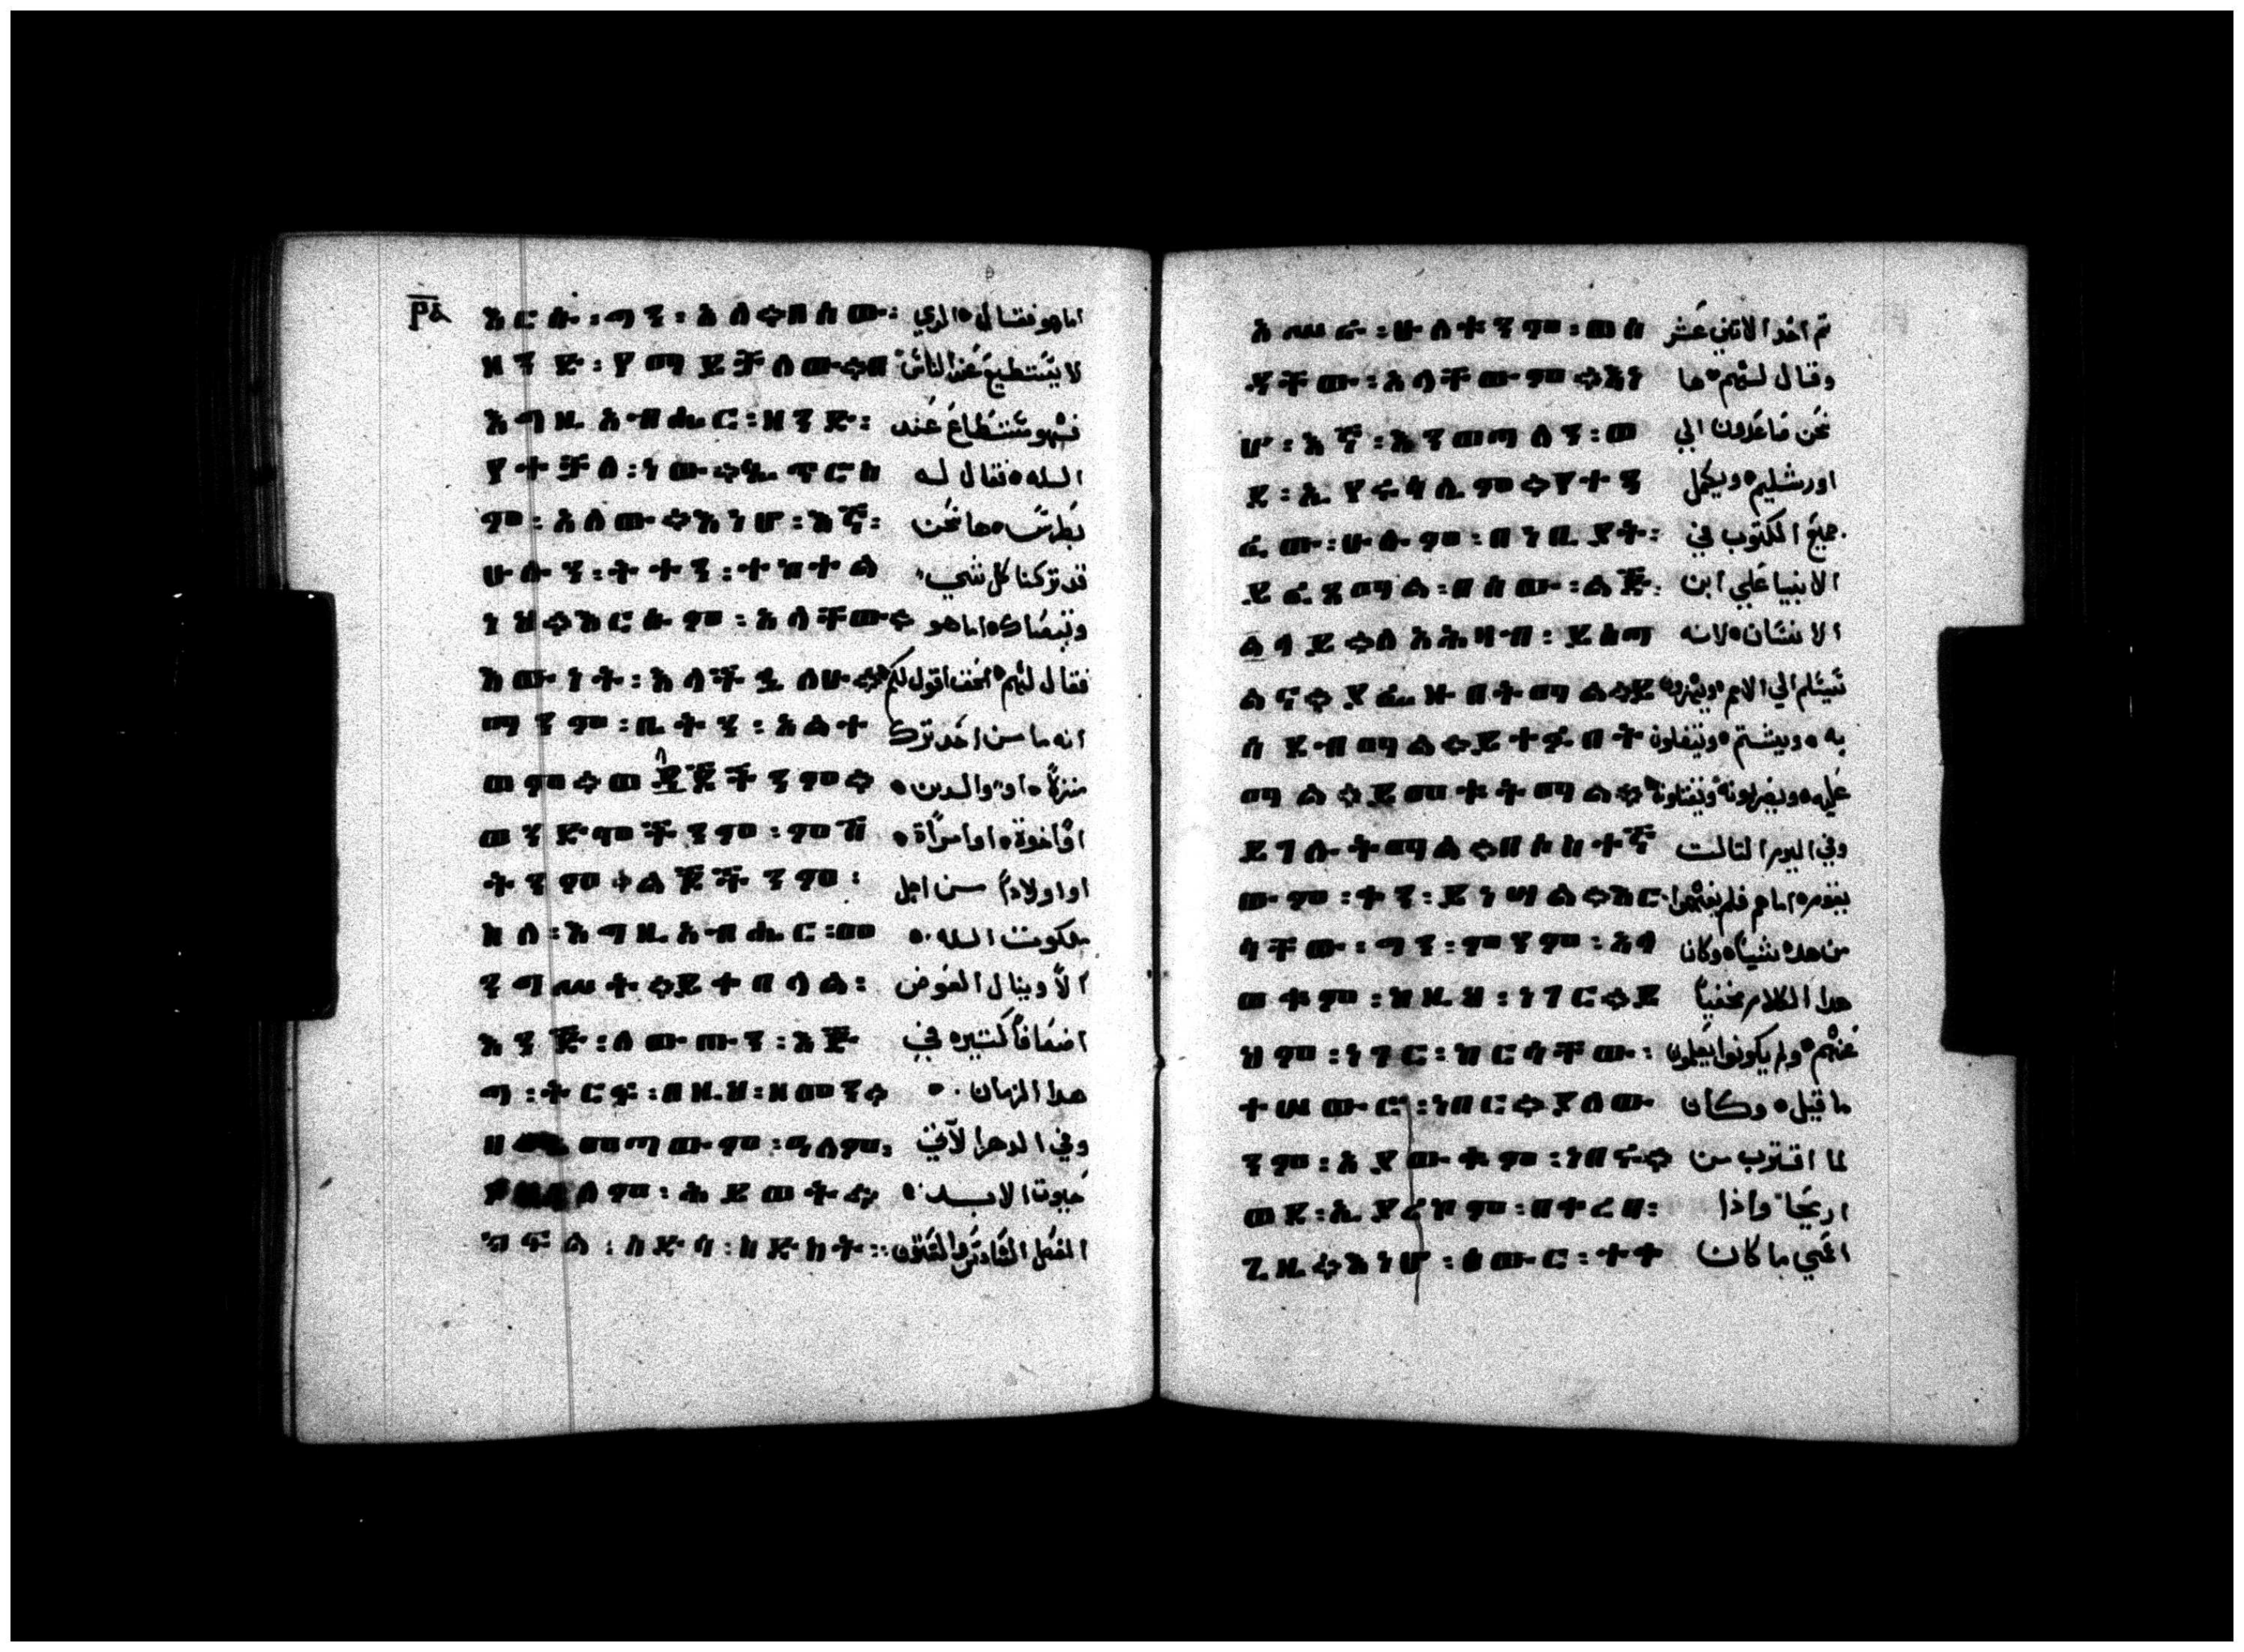 እርሱ፡ግን፡አለ፨በሰው፡ اماهو فقال ۰ الدي
ዘንድ፡የማይቻለው፨በ لا يستطيع عند الناس
እግዚአብሔር፡ዘንድ፡ فهو مستطاع عند
የተቻለ፡ነው፨ጴጥሮስ الله ۰ فقال له
ም፡አለው፨እነሆ፡እኛ፡ بطرس ۰ ها نحن
ሁሉን፡ትተን፡ተከተል قد تركنا كل شي
ንህ፨እርሱም፡አላቸው፨ وتبعناك ۰ اماهو
እውነት፡እላችኋለሁ፨ فقال لهم ۰ الحق اقول لكم
ማንም፡ቤቱን፡እልተ انه ما من احد ترك
ወም፨ወላጆቹንም፨ منزلاً ۰ او والدين ۰
ወንድሞቹንም፡ምሽ او اخوة ۰ او امراة ۰
ቱንም፨ልጆቹንም፡ او اولاداً من اجل
ስለ፡እግዚአብሔር፡መ ملكوت الله ۰
ንግሥት፨ይተበላል፡ الاّ وينال العوض
እንጂ፡ለውጡን፡እጅ اضعافاً كتيره في
ግ፡ትርፍ፡በዚህ፡ዘመን፨ هدا الزمان ۰
መጣውም፡ዓለም፡ وفي الدهر الآتي
ለም፡ሕይወት፨ حيوة الابد ۰
ክፍል፡ሰድሳ፡ስድስት፡፡ الفصل السادس والستون
አሥራ፡ሁለትንም፡ወስ تم اخد الاتني عشر
ዶቸው፡አላቸውም፨እነ وقال لهم ۰ ها
ሆ፡እኛ፡እንወጣለን፡ወ نحن صاعدون الي
ደ፡ኢየሩሳሌም፨የተጻ اورشليم ۰ ويكمل
ፈው፡ሁሉም፡በነቢያት፡ جميع المكتوب في
ይፈጸማል፡በሰው፡ልጅ፡ الانبيا علي ابن
ላይ፨ለአሕዛብ፡ይሰጣ الانسان ۰ لانه
ልና፨ይሥቁበታል፨ይ سيسلم الي الامم ۰ ويهزو
ሰድባል፨ይተፉበት به ۰ ويشتم ۰ ويتفلون
ማል፨ይመቱታል፨ عليه ۰ ويضربونه ۰ ويقتلونه
ይገሉታል፨በሶስተኛ وفي اليوم التالت
ውም፡ቀን፡ይነሣል፨እር يقوم ۰ اماهم فلم يفهموا
ሳቸው፡ግን፡ምንም፡አላ من هده شياً ۰ وكان
ወቁም፡ከዚህ፡ነገር፨ይ هدا الكلام مخفياً
ህም፡ነገር፡ከርሳቸው፡ عنهم ۰ ولم يكونوا يعلمون
ተሠውሮ፡ነበር፨የሰው ما قيل ۰ وكان
ንም፡አያውቁም፡ነበረ፨ لما اقترب من
ወደ፡ኢያሪኮም፡በቀረበ፡ اريحا ۰ واذا
ጊዜ፨እነሆ፡ዕውር፡ተቀ اعمي ما كان